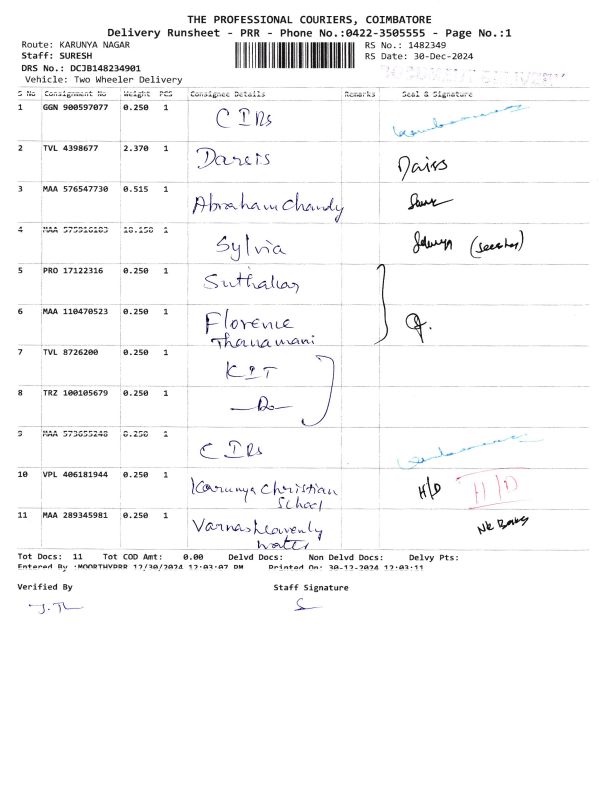 THE PROFESSIONAL COURIERS, COIMBATORE
Delivery Runsheet - PRR - Phone No.:0422-3505555 - Page No.:1
Route: KARUNYA NAGAR RS No.: 1482349
Staff: SURESH RS Date: 30-Dec-2024
DRS No.: DCJB148234901
Vehicle: Two Wheeler Delivery
S No Consignment No Weight PCS Consignee Details Remarks Seal & Signature
1 GGN 900597077 0.250 1 CIRs
2 TVL 4398677 2.370 1 Dareis
3 MAA 576547730 0.515 1 Abraham Chandy
4 MAA 1 Sylvia
5 PRO 17122316 0.250 1 Suthakar
6 MAA 110470523 0.250 1 Florence
Thanamani
7 TVL 8726200 0.250 1 KIT
8 TRZ 100105679 0.250 1 -Do-
9 MAA 1 CIRs
10 VPL 406181944 0.250 1 Karunya Christian H/D H/D
School
11 MAA 289345981 0.250 1 Varnas Heavenly
water
Tot Docs: 11 Tot COD Amt: 0.00 Delvd Docs: Non Delvd Docs: Delvy Pts:
Entered By :MOORTHYPRR 12/30/2024 12:03:07 PM Printed On: 30-12-2024 12:03:11
Verified By Staff Signature